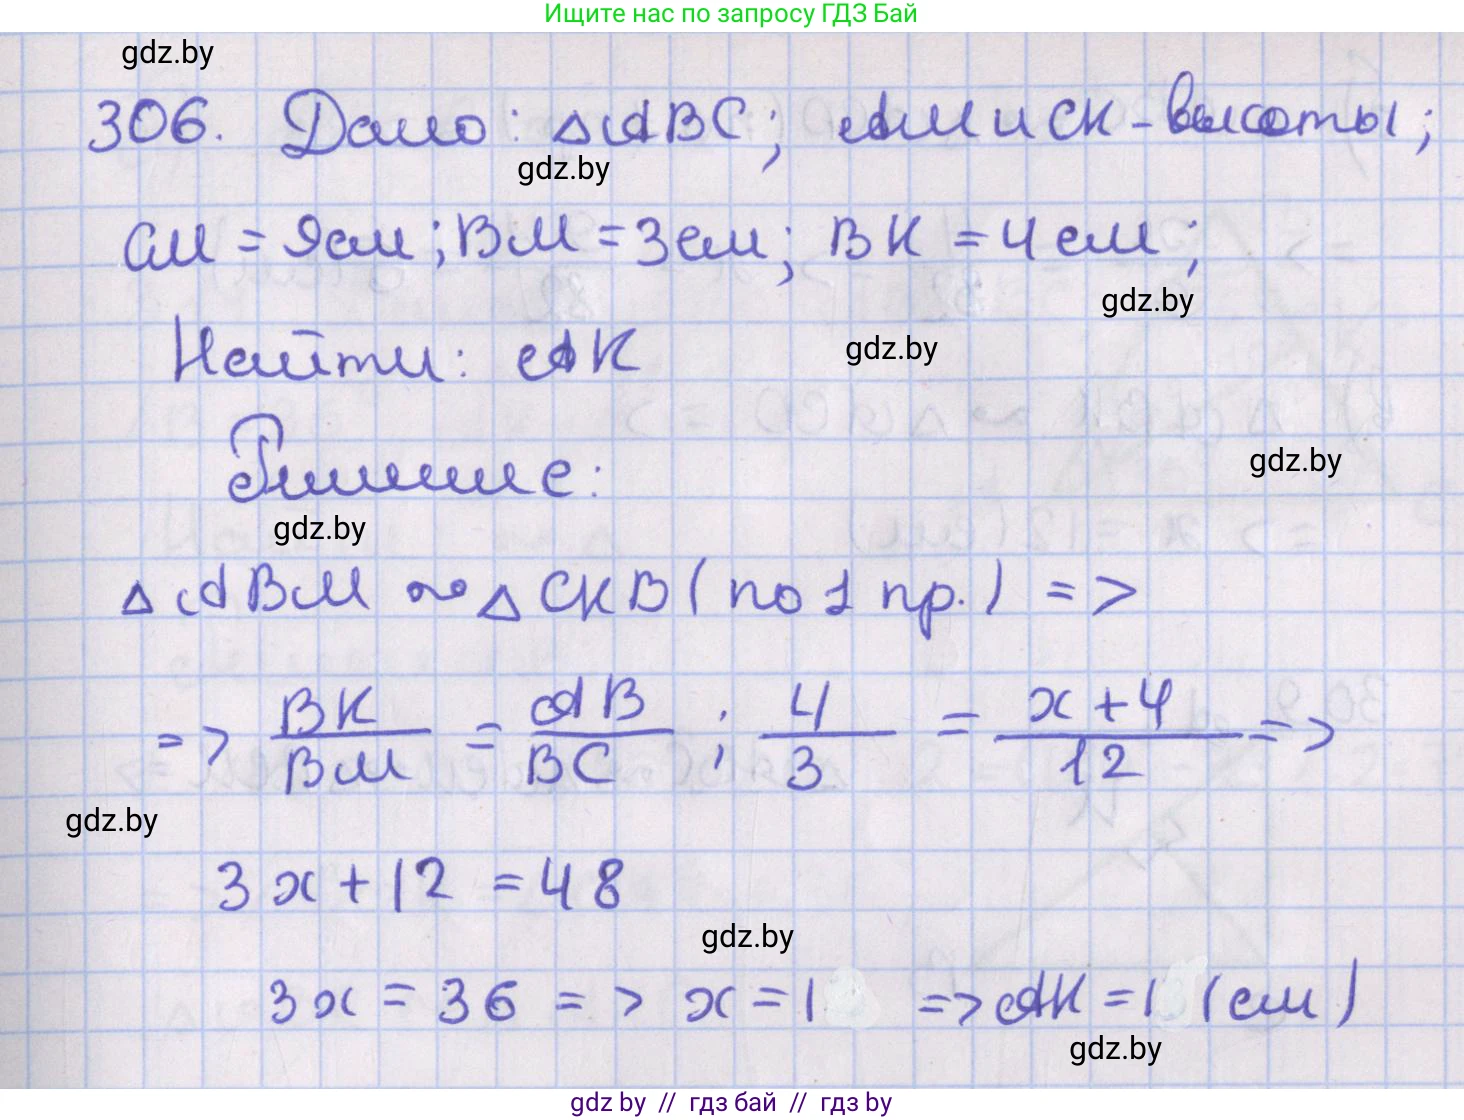 Ищите нас по запросу ГДЗ Бай
gdz.by
306. Дано: △ABC; AM и CK - высоты;
gdz.by
CM = 9см; BM = 3см; BK = 4см;
gdz.by
Найти: AK
gdz.by
Решение:
gdz.by
gdz.by
△ABM ~ △CKB (по 1 пр.) =>
=> BK/BM = AB/BC ; 4/3 = x+4/12 =>
gdz.by
3x+12 = 48
gdz.by
3x = 36 => x = 1 => AK = 1 (см)
gdz.by
gdz by // гдз бай // гдз by